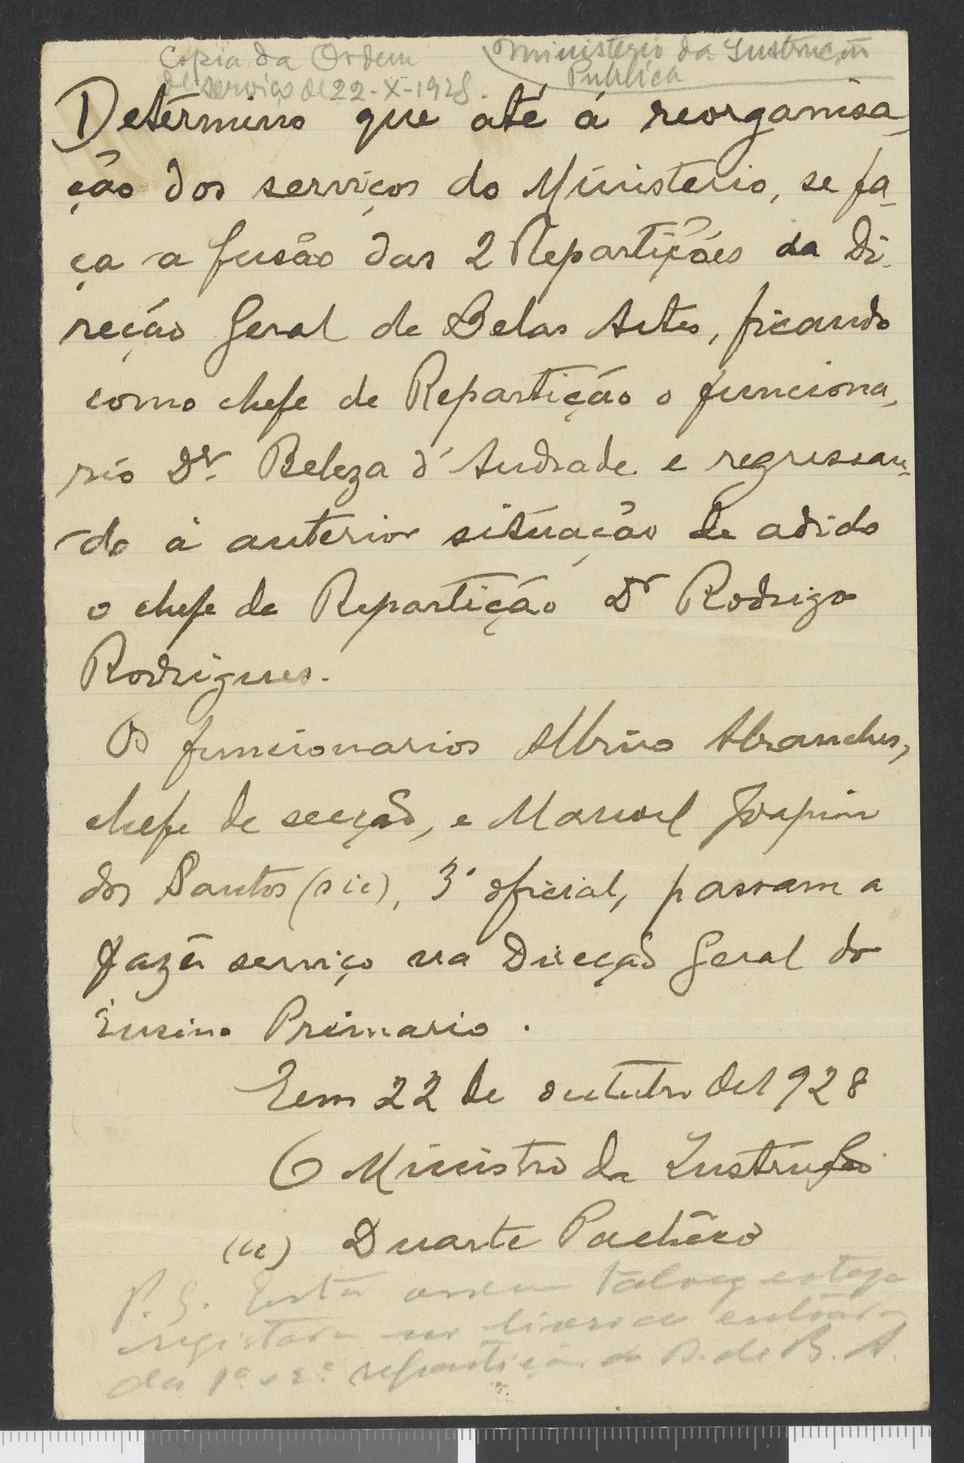 Copia da Ordem
de serviço de 22-X-1928.
Ministerio da Instrução
Publica
Determino que até á reorganisa-
ção dos serviços do Ministerio, se fa-
ça a fusão das 2 Repartições da Di-
reção Geral de Belas Artes, ficando
como chefe de Repartição o funciona-
rio Dr. Beleza d'Andrade e regressan-
do á anterior situação de adido
o chefe de Repartição Dr Rodrigo
Rodrigues.
Os funcionarios Albino Abranches,
chefe de secção, e Manuel Joaquim
dos Santos (sic), 3º oficial, passam a
fazer serviço na Direcção Geral do
Ensino Primario.
Em 22 de outubro de 1928
O Ministro da Instrução
(a) Duarte Pacheco
P.S. Esta ordem talvez esteja
registada no livro de entrada
da 1ª e 2ª repartição da D. de B. A.